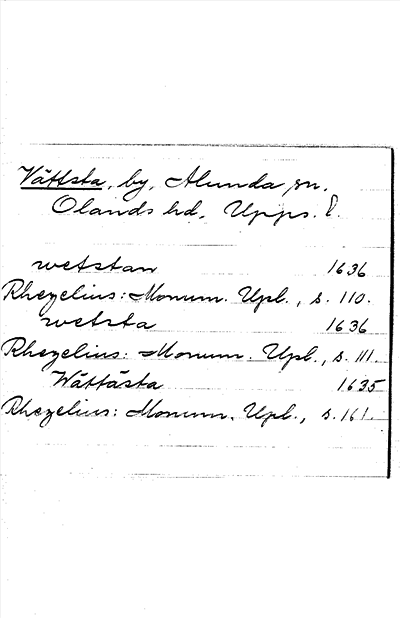 Vättsta, by, Alunda sn.
Olands hd, Upps. l.
wetstan 1636
Rhezelius: Monum. Upl., s. 110.
wetsta 1636
Rhezelius: Monum. Upl., s. 111.
Wättästa 1635
Rhezelius: Monum. Upl., s. 161.